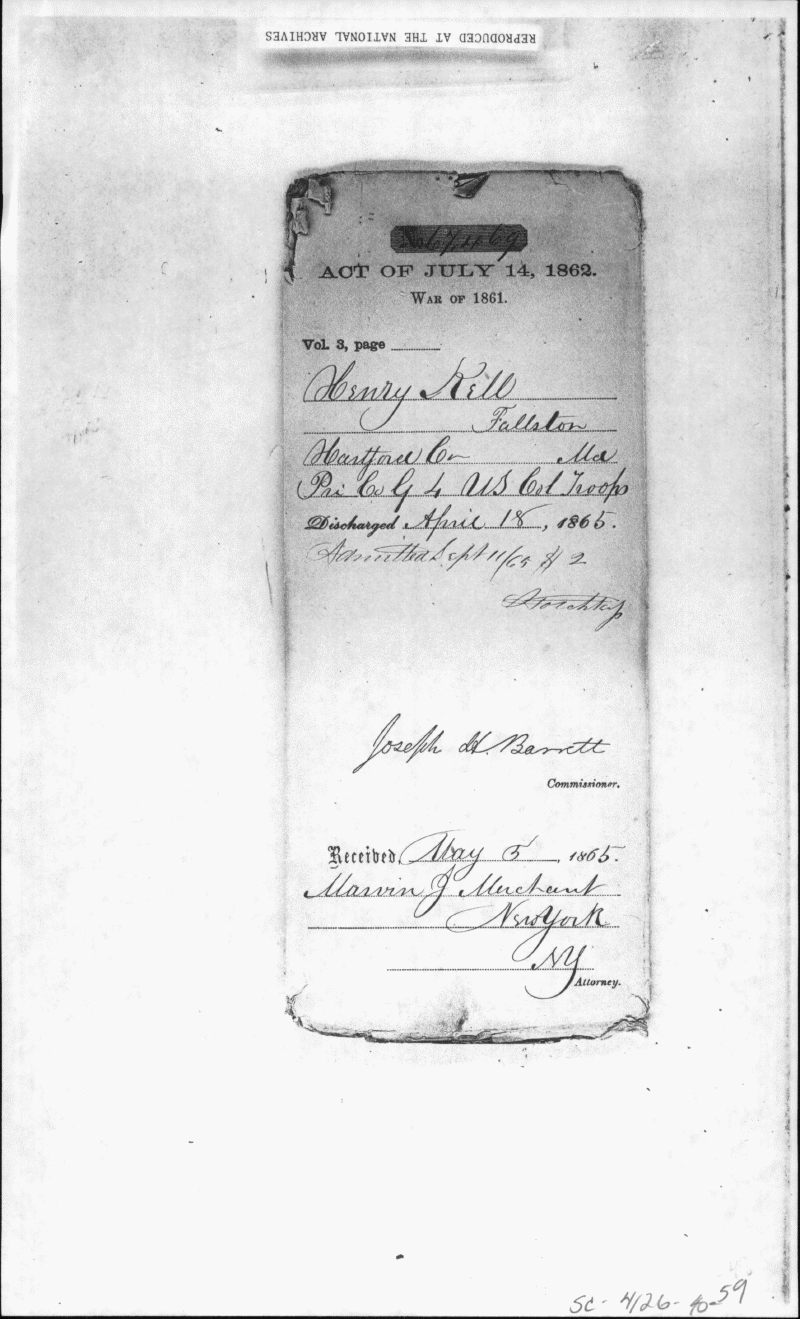 REPRODUCED AT THE NATIONAL ARCHIVES
No. 67469
ACT OF JULY 14, 1862.
WAR OF 1861.
Vol. 3, page
Henry Kell
Fallston
Hartford Co Md
Pri Co G 4 US Col Troops
Discharged April 18, 1865.
Admitted Sept 11/65 2
Joseph H. Barrett
Commissioner.
Received, May 5, 1865.
Marvin J Merchant
New York
NY
Attorney.
SC-4126-40-59